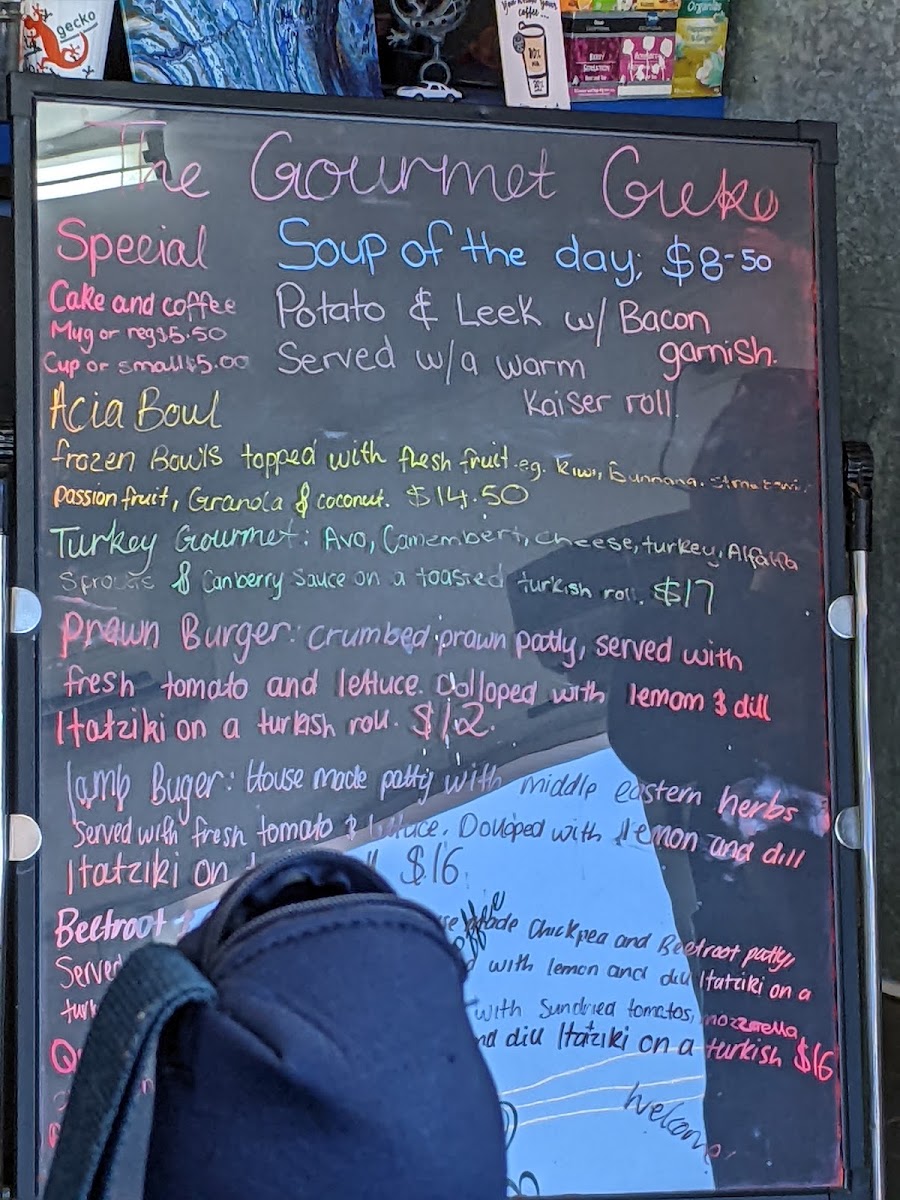 gecko
You know your coffee...
Organics
The Gourmet Gieko
Special
Cake and coffee
Mug or reg $5.50
Cup or small $5.00
Soup of the day; $8-50
Potato & Leek w/ Bacon
garnish.
Served w/a warm
Kaiser roll
Acia Boul
frozen Bowls topped with flesh fruit e.g. Kiwi,
passionfruit, Granola & coconut. $14.50
Turkey Gourmet: Avo, Camembert, cheese, turkey, Alfalfa
Sprouts & Canberry Sauce on a toasted turkish roll. $17
Prawn Burger: crumbed prawn patty, served with
fresh tomato and lettuce. Dolloped with lemom & dill
Itatziki on a turkish roll. $12.
Lamb Buger: House made patty with middle eastern herbs
Served with fresh tomato & lettuce. Dolloped with lemon and dill
Itatziki on $16
Beetroot made Chickpea and Beetroot patty,
Served with lemon and dill Itatziki on a
turk with Sundried tomatos, mozzerella
nd dill Itatziki on a turkish $16
Welcome